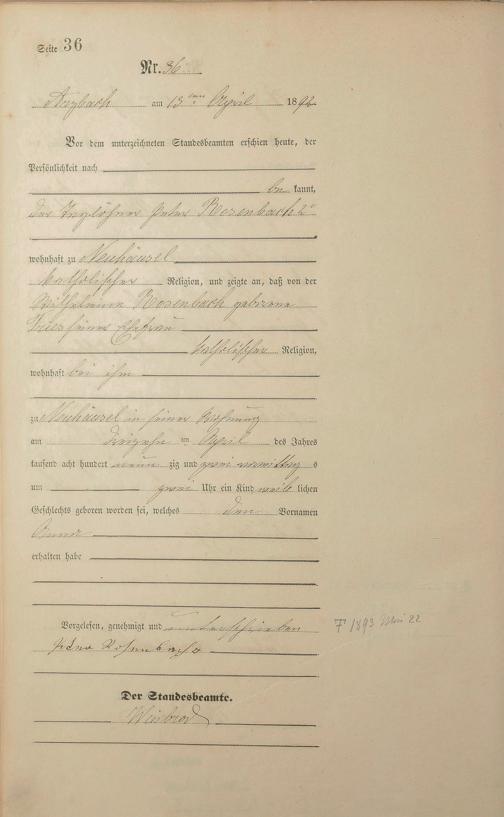 Seite 36
Nr. 36
Arzbach am 13ten April 1892
Vor dem unterzeichneten Standesbeamten erschien heute, der
Persönlichkeit nach
be kannt,
der Taglöhner Peter Rosenbach 2r
wohnhaft zu Neuhäusel
katholischer Religion, und zeigte an, daß von der
Wilhelmine Rosenbach geborene
seiner Ehefrau
katholischer Religion,
wohnhaft bei ihm
zu Neuhäusel in seiner Wohnung
am dreizehn ten April des Jahres
tausend acht hundert neun zig und zwei vormittag s
um zwei Uhr ein Kind weib lichen
Geschlechts geboren worden sei, welches den Vornamen
Anna
erhalten habe
Vorgelesen, genehmigt und unterschrieben
Peter Rosenbach
† 1893 Mai 22
Der Standesbeamte.